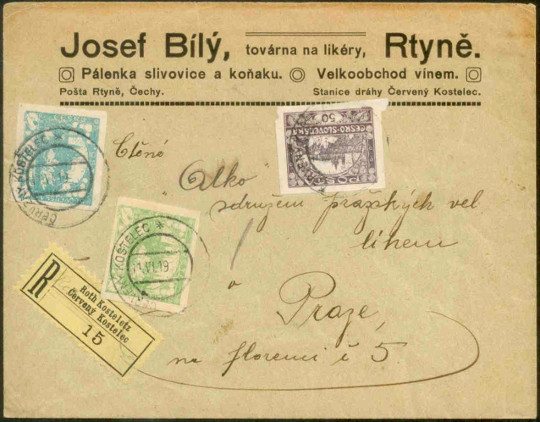 Josef Bílý, továrna na likéry, Rtyně.
Pálenka slivovice a koňaku. Velkoobchod vínem.
Pošta Rtyně, Čechy. Stanice dráhy Červený Kostelec.
50
ČESKO-SLOVENSKÁ
ČERVENÝ KOSTELEC
Ctěné
"Alko"
sdružení pražských vel
lihem
ČERVENÝ KOSTELEC
11.VI.19
v
Praze,
na florenci č 5.
R
Roth Kosteletz
Červený Kostelec
15